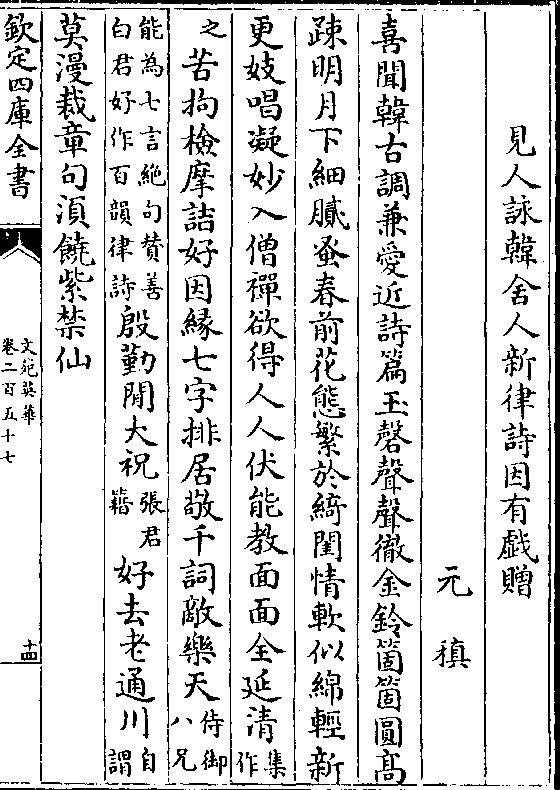 見人詠韓舍人新律詩因有戲贈
元稹
喜聞韓古調兼愛近詩篇玉磬聲聲徹金鈴箇箇圓髙
疎明月下細膩蚤春前花態繁於綺閨情軟似綿輕新
更妓唱凝妙入僧禪欲得人人伏能教面面全延清集作
之苦拘檢摩詰好因緣七字排居敬千詞敵樂天侍御八兄
能為七言絶句賛善白君好作百韻律詩殷勤閒大祝張君籍好去老通川自謂
莫漫裁章句湏饒紫禁仙
欽定四庫全書
文苑英華
卷二百五十七
十四